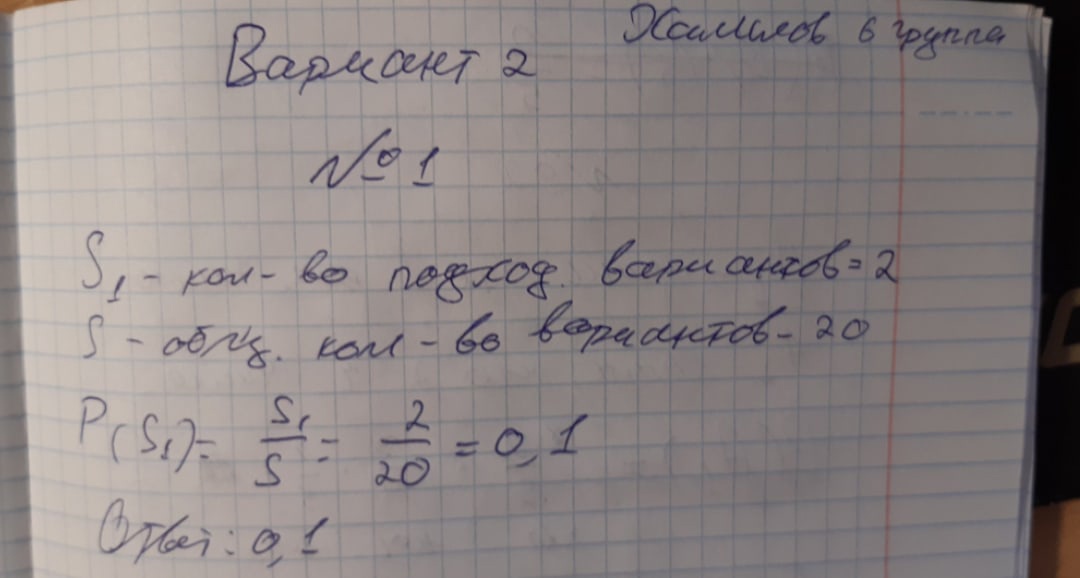 Халилов 6 группа
Вариант 2
№ 1
S₁ - кол-во подход. вариантов = 2
S - общ. кол-во вариантов - 20
P(S₁) = S₁/S = 2/20 = 0,1
Ответ: 0,1